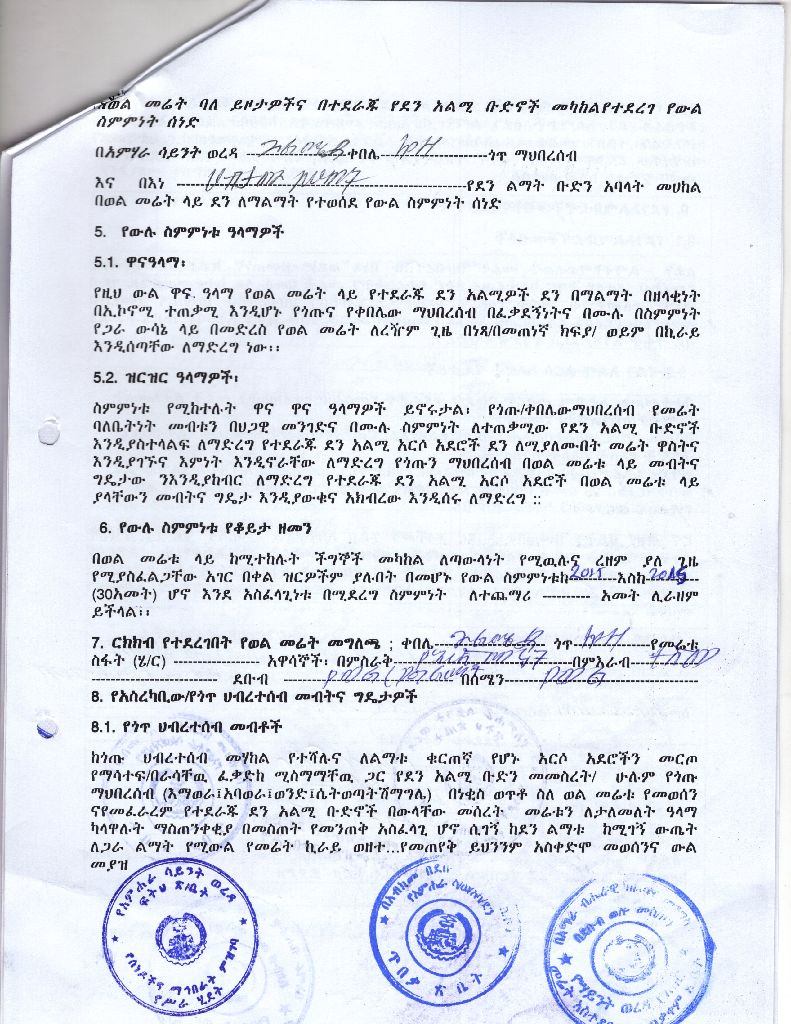 የወል መሬት ባለ ይዞታዎችና በተደራጁ የደን አልሚ ቡድኖች መካከልየተደረገ የውል
ስምምነት ሰነድ
በአምሃራ ሳይንት ወረዳ ------------ ቀበሌ ------------ጎጥ ማህበረሰብ
እና በእነ ------------የደን ልማት ቡድን አባላት መሀከል
በወል መሬት ላይ ደን ለማልማት የተወሰደ የውል ስምምነት ሰነድ
5. የውሉ ስምምነቱ ዓላማዎች
5.1. ዋናዓላማ፡
የዚህ ውል ዋና ዓላማ የወል መሬት ላይ የተደራጁ ደን አልሚዎች ደን በማልማት በዘላቂነት
በኢኮኖሚ ተጠቃሚ እንዲሆኑ የጎጡና የቀበሌው ማህበረሰብ በፈቃደኝነትና በሙሉ በስምምነት
የጋራ ውሳኔ ላይ በመድረስ የወል መሬት ለረዥም ጊዜ በነጻ/በመጠነኛ ክፍያ/ ወይም በኪራይ
እንዲሰጣቸው ለማድረግ ነው፡፡
5.2. ዝርዝር ዓላማዎች፡
ስምምነቱ የሚከተሉት ዋና ዋና ዓላማዎች ይኖሩታል፡ የጎጡ/ቀበሌውማህበረሰብ የመሬት
ባለቤትነት መብቱን በህጋዊ መንገድና በሙሉ ስምምነት ለተጠቃሚው የደን አልሚ ቡድኖች
እንዲያስተላልፍ ለማድረግ የተደራጁ ደን አልሚ አርሶ አደሮች ደን ለሚያለሙበት መሬት ዋስትና
እንዲያገኙና እምነት እንዲኖራቸው ለማድረግ የጎጡን ማህበረሰብ በወል መሬቱ ላይ መብትና
ግዴታው ንእንዲያከብር ለማድረግ የተደራጁ ደን አልሚ አርሶ አደሮች በወል መሬቱ ላይ
ያላቸውን መብትና ግዴታ እንዲያውቁና አክብረው እንዲሰሩ ለማድረግ ::
6. የውሉ ስምምነቱ የቆይታ ዘመን
በወል መሬቱ ላይ ከሚተከሉት ችግኞች መካከል ለጣውላነት የሚዉሉና ረዘም ያለ ጊዜ
የሚያስፈልጋቸው አገር በቀል ዝርዎችም ያሉበት በመሆኑ የውል ስምምነቱከ------እስከ 2045
(30አመት) ሆኖ እንደ አስፈላጊነቱ በሚደረግ ስምምነት ለተጨማሪ ---------- አመት ሊራዘም
ይችላል፡፡
7. ርክክብ የተደረገበት የወል መሬት መግለጫ ; ቀበሌ------------ ጎጥ --------የመሬቱ
ስፋት (ሄ/ር) ---------------- አዋሳኞች፡ በምስራቅ------------በምእራብ------------
-------------------------- ደቡብ ------------ በሰሜን------------
8. የአስረካቢው/የጎጥ ህብረተሰብ መብትና ግዴታዎች
8.1. የጎጥ ህብረተሰብ መብቶች
ከጎጡ ህብረተሰብ መሃከል የተሻሉና ለልማቱ ቁርጠኛ የሆኑ አርሶ አደሮችን መርጦ
የማሳተፍ/በራሳቸዉ ፈቃድከ ሚስማማቸዉ ጋር የደን አልሚ ቡድን መመስረት/ ሁሉም የጎጡ
ማህበረሰብ (እማወራ፤አባወራ፤ወንድ፤ሴትወጣትሽማግሌ) በነቂስ ወጥቶ ስለ ወል መሬቱ የመወሰን
ናየመፈራረም የተደራጁ ደን አልሚ ቡድኖች በውላቸው መሰረት መሬቱን ለታለመለት ዓላማ
ካላዋሉት ማስጠንቀቂያ በመስጠት የመንጠቅ አስፈላጊ ሆኖ ሲገኝ ከደን ልማቱ ከሚገኝ ውጤት
ለጋራ ልማት የሚውል የመሬት ኪራይ ወዘተ...የመጠየቅ ይህንንም አስቀድሞ መወሰንና ውል
መያዝ
የአምሐራ ሳይንት ወረዳ
ፍትህ ጽ/ቤት
የሰነዶችና ማኅበራት ምዝገባ
የሥራ ሂደት
ጥበቃ ጽ/ቤት